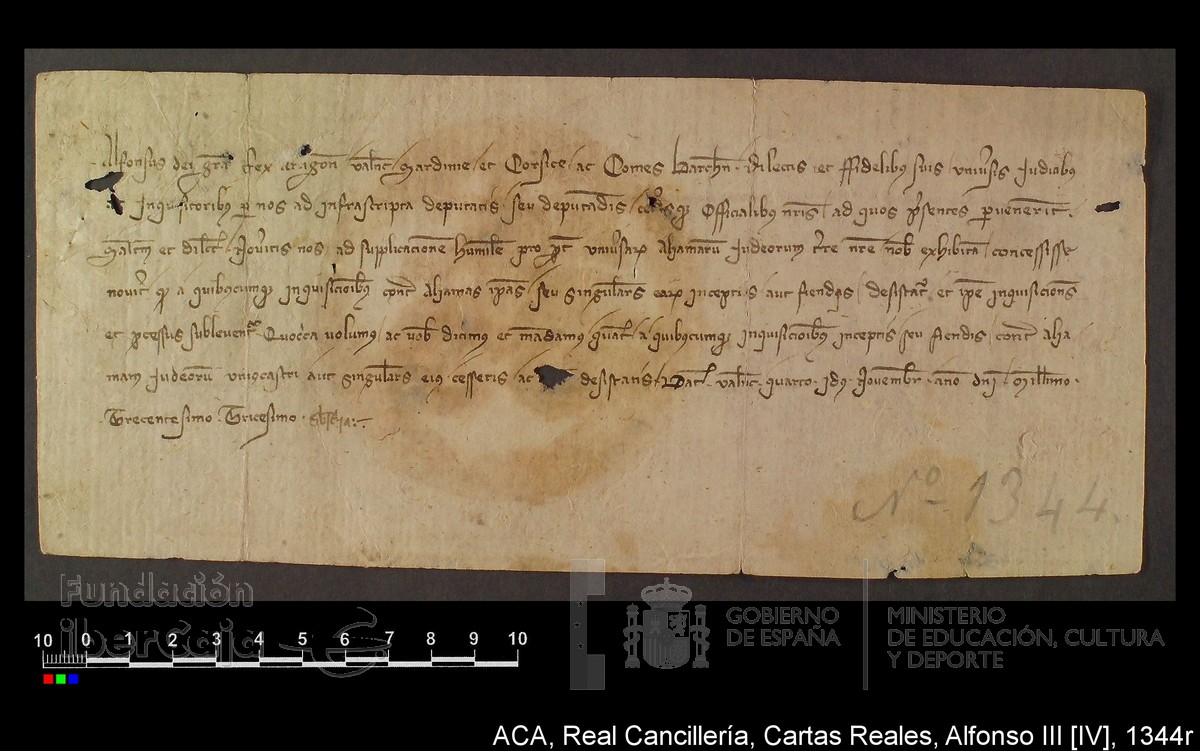 Alfonsus dei gra Rex Aragon Valenc Sardinie et Corsice ac Comes Barchn Dilectis et ffidelibus suis univsis Judicibus
et Inquisitoribus p nos ad infrascripta deputatis seu deputandis Officialibus nris ad quos psentes pvenerit
Saltm et dilct Noveritis nos ad supplicacione humile pro pte univsarum aliamarum Judeorum tre nre nob exhibita concessisse
q a quibuscumq inquisicionibus contr aliamas ipas seu singulars earum inceptis aut fiendis desistat et ipe inquisicions
et pcessus sublevent Quocirca volumus ac vob dicimus et mandamus quat a quibuscumq inquisicionibus inceptis seu fiendis contr alia
mam Judeorum aut singulars eius cessetis ac desistatis Dat Valenc quarto idus Novembr anno dni Millimo
Trecentesimo Tricesimo
Nº 1344
Fundación
ibercaja
GOBIERNO
DE ESPAÑA
MINISTERIO
DE EDUCACIÓN, CULTURA
Y DEPORTE
10 0 1 2 3 4 5 6 7 8 9 10
ACA, Real Cancillería, Cartas Reales, Alfonso III [IV], 1344r